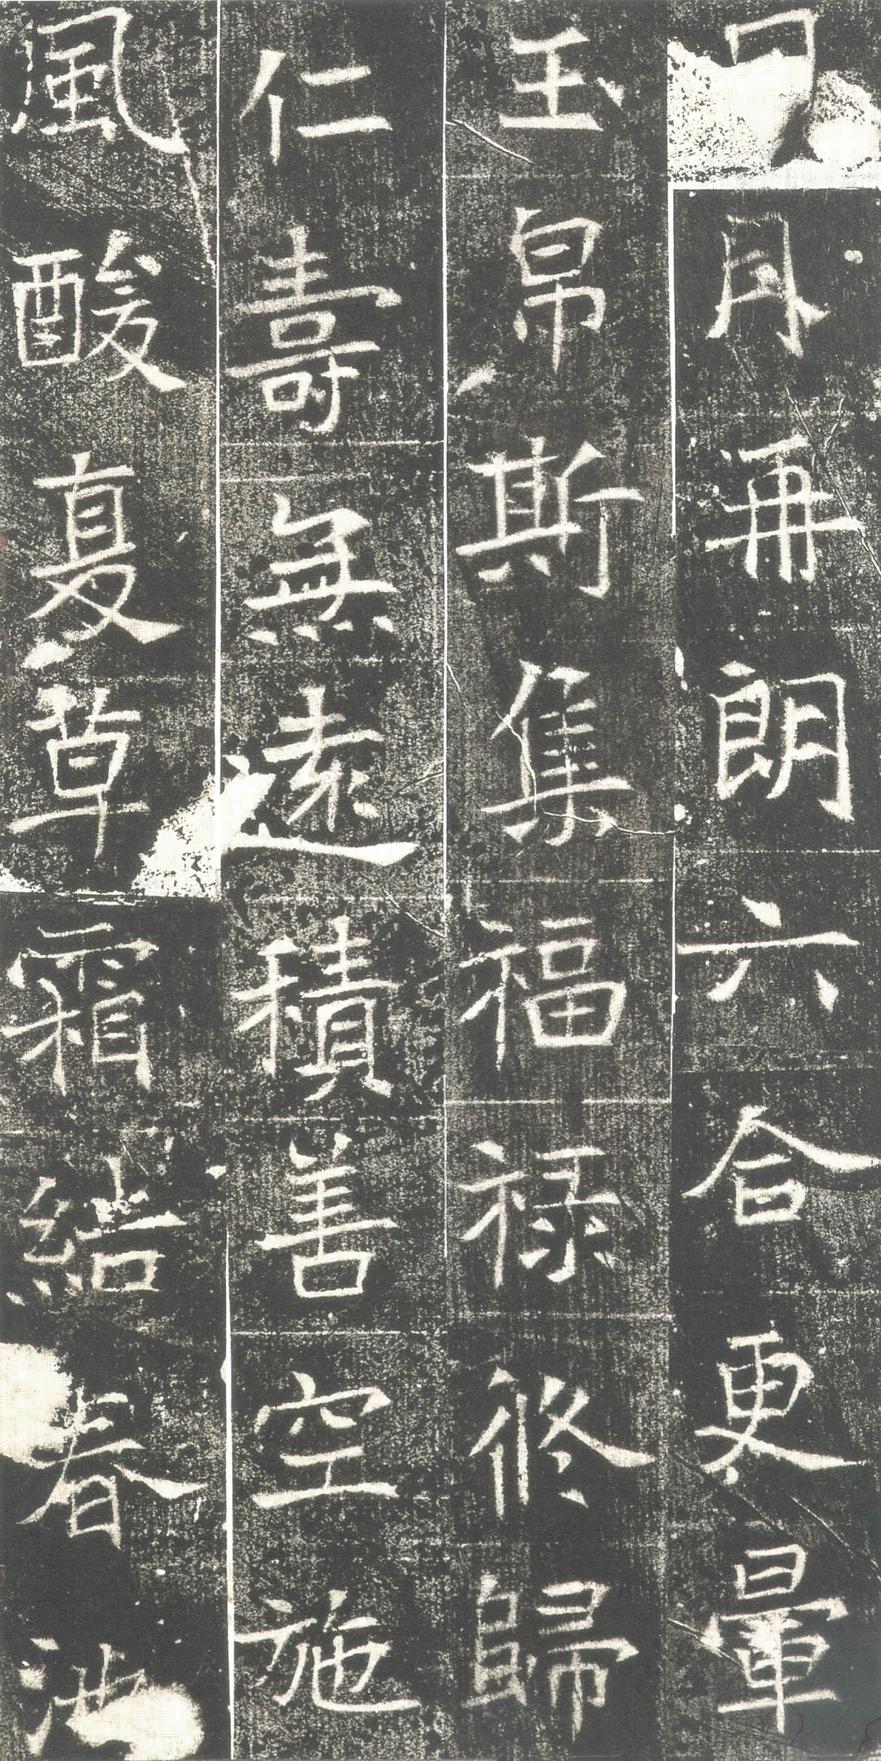 月再朗六合更暈
玉帛斯集福禄攸歸
仁壽無遠積善空施
風酸夏草霜結春池